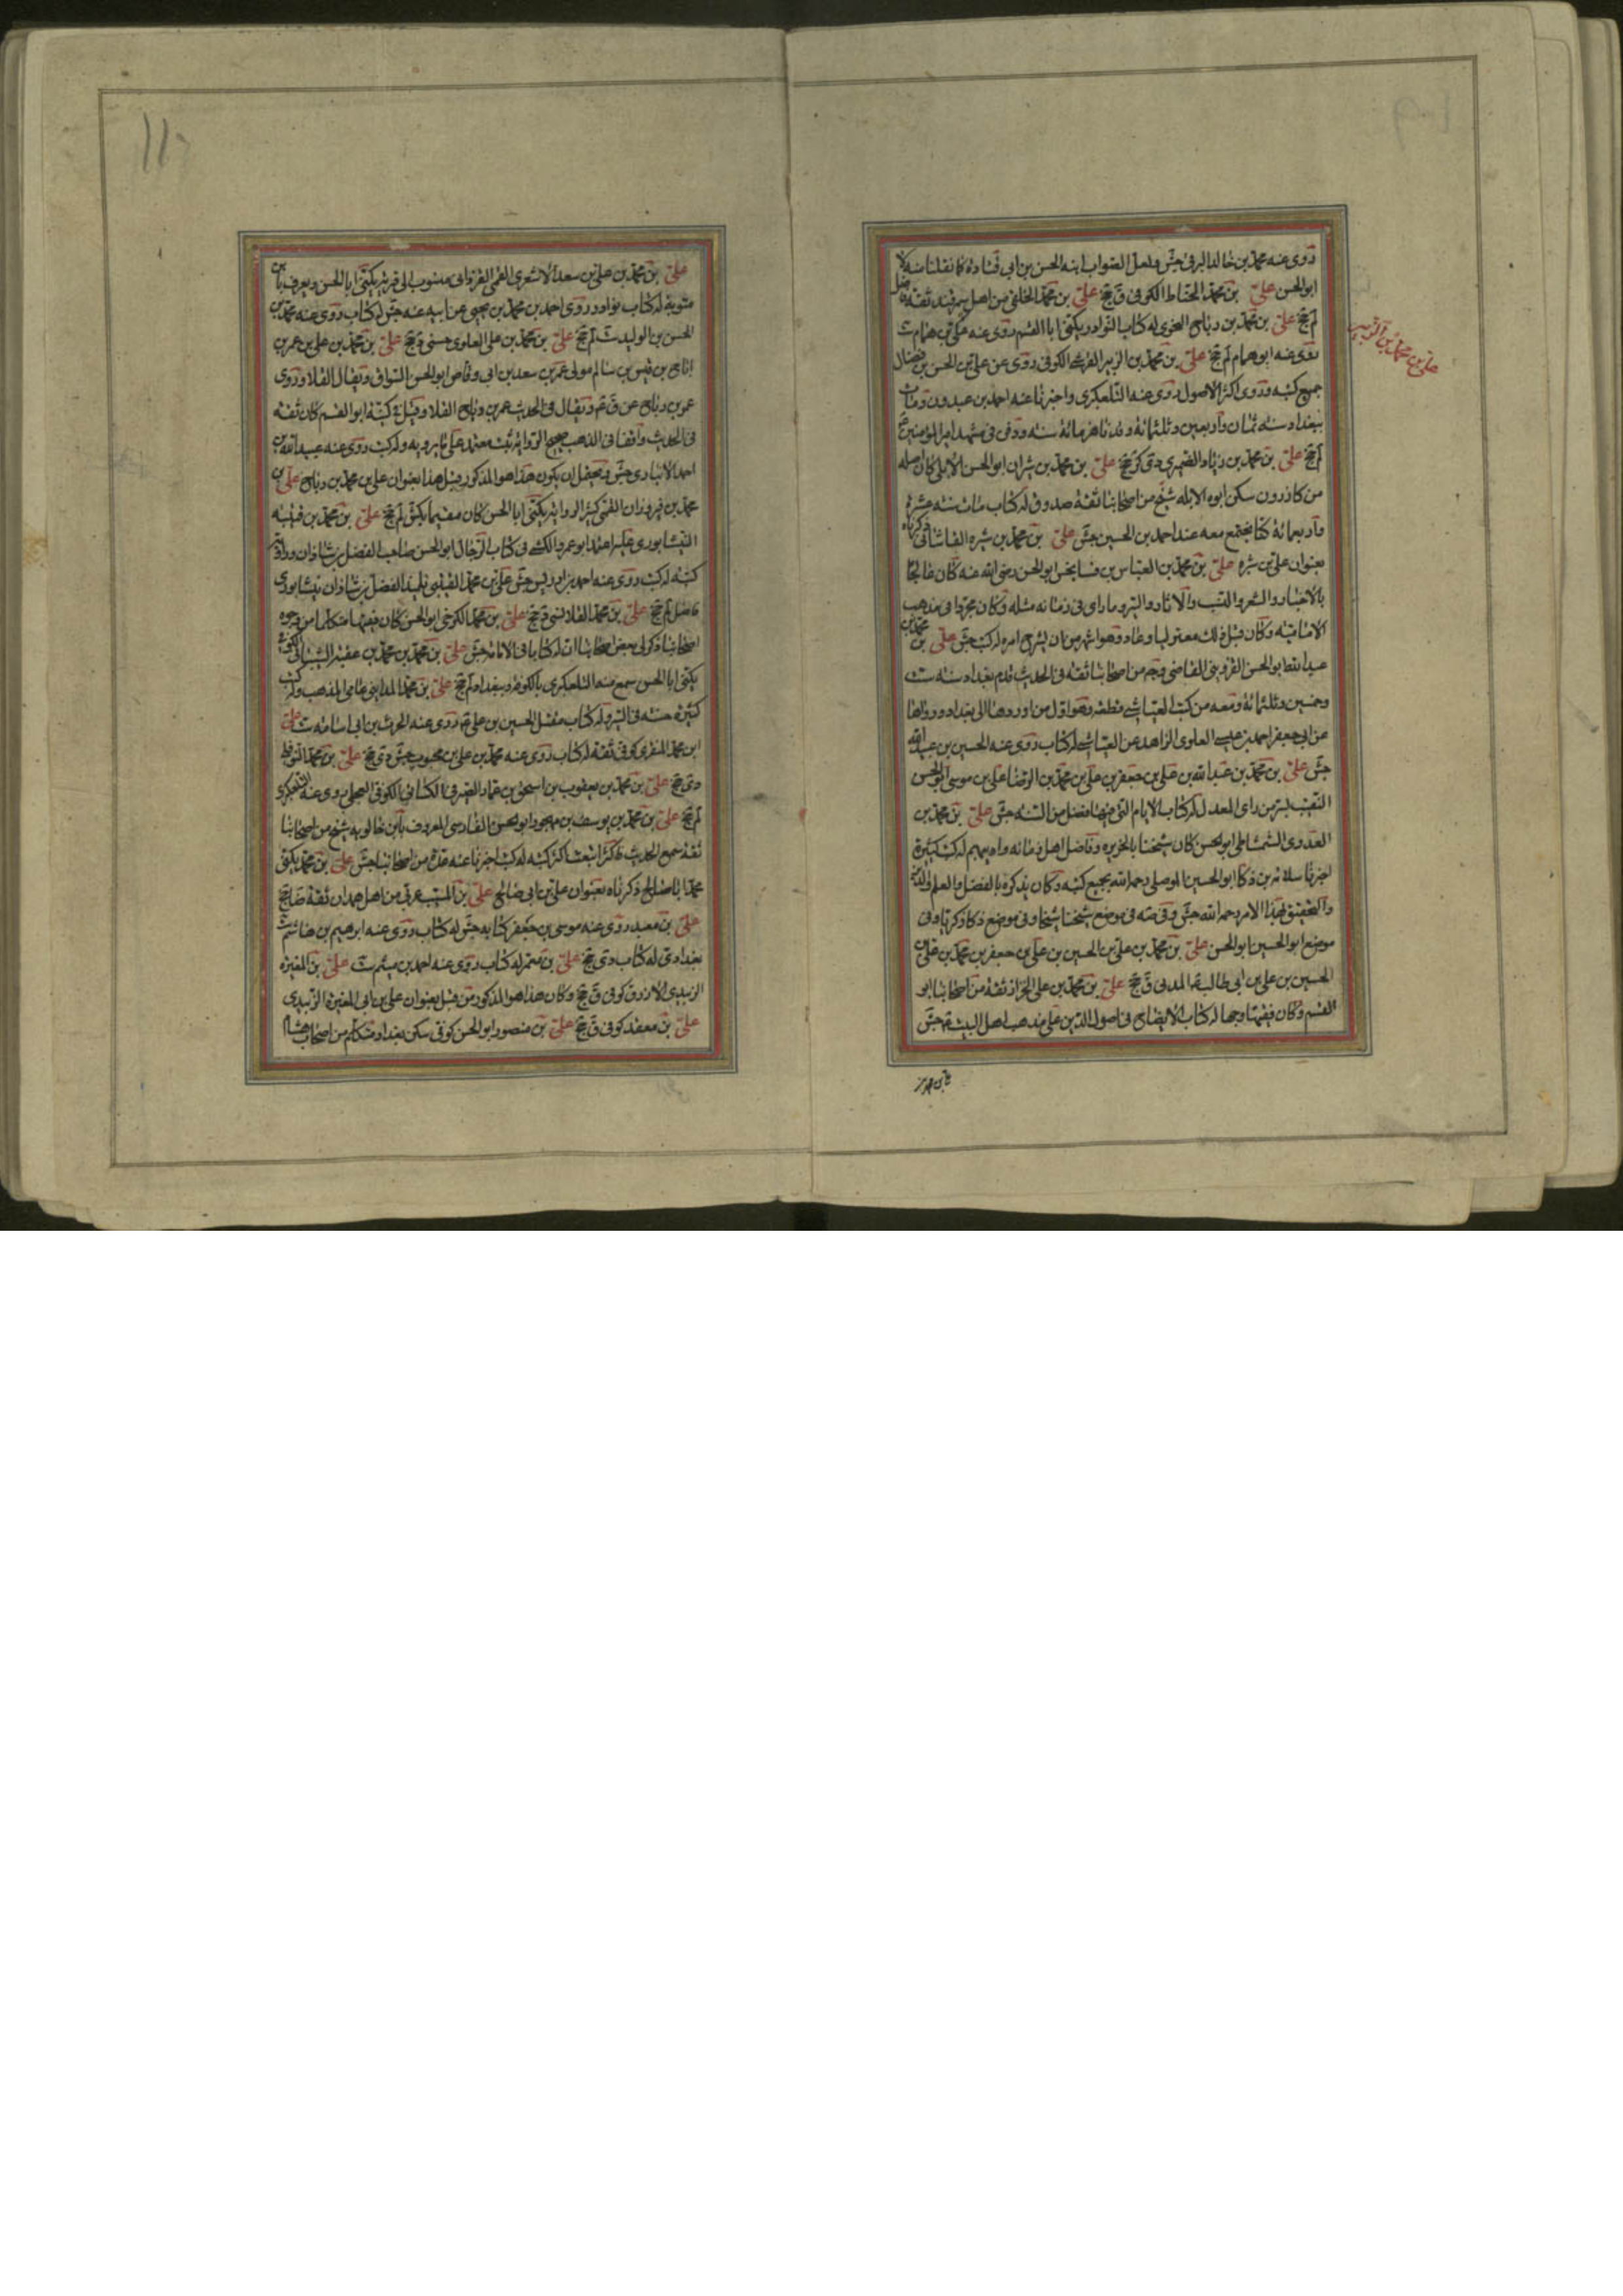 روى عنه محمد بن خالد البرقى جش ولعل الصواب ابنه الحسن بن ابى قتادة كما نقلنا منه
ابو الحسن على بن محمد الحناط الكوفى ق جخ على بن محمد الخلقى من اهل سمرقند ثقة فاضل
لم جخ على بن محمد بن رباح النحوى له كتاب النوادر يكنى ابا القسم روى عنه
روى عنه ابو همام لم جخ على بن محمد بن الزبير القرشى الكوفى روى عن على بن الحسن بن فضال
على بن محمد بن الزبير
جميع كتبه وروى اكثر الاصول روى عنه التلعكبرى واخبرنا عنه احمد بن عبدون ومات
ببغداد سنة ثمان واربعين وثلثمائة وقد ناهز مائة سنة ودفن فى مشهد امير المؤمنين ع
لم جخ على بن محمد بن زياد الصيمرى دى كر جخ على بن محمد بن شران ابو الحسن الابلى كان اصله
من كازرون سكن ابوه الابله شيخ من اصحابنا ثقة صدوق له كتاب مات سنة عشرة
واربعمائة كنا نجتمع معه عند احمد بن الحسين جش على بن محمد بن شيره القاسانى ذكرناه
بعنوان على بن شيره على بن محمد بن العباس بن فسانجس ابو الحسن رضى الله عنه كان عالما
بالاخبار والشعر والنسب والاثار والسير وما راى فى زمانه مثله وكان مجردا فى مذهب
الامامية وكان قبل ذلك معتزليا وعاد وهو اشهر من ان يشرح امره له كتب جش على بن محمد بن
عبد الله ابو الحسن القزوينى القاضى وجه من اصحابنا ثقة فى الحديث قدم بغداد سنة ست
وخمسين وثلثمائة ومعه من كتب العياشى قطعة وهو اول من اوردها الى بغداد ورواها
عن ابى جعفر احمد بن عيسى العلوى الزاهد عن العياشى له كتاب روى عنه الحسين بن عبيد الله
جش على بن محمد بن عبد الله بن على بن جعفر بن على بن محمد بن الرضا على بن موسى ابو الحسن
النقيب بسر من راى المعدل له كتاب الايام التى فيها فضل من السنة جش على بن محمد بن
العدوى الشمشاطى ابو الحسن كان شيخنا بالجزيره وفاضل اهل زمانه واديبهم له كتب كثيرة
اخبرنا سلامة بن ذكا ابو الحسين الموصلى رحمه الله بجميع كتبه وكان يذكره بالفضل والعلم والدين
والتحقيق بهذا الامر رحمه الله جش وفى صه فى موضع شيخنا شيخا وفى موضع ذكا ذكريا وفى
موضع ابو الحسين ابو الحسن على بن محمد بن على بن الحسين بن على بن جعفر بن محمد بن على بن
الحسين بن على بن ابى طالب ع المدنى ق جخ على بن محمد بن على الخزاز ثقة من اصحابنا ابو
القسم وكان فقيها وجها له كتاب الايضاح فى اصول الدين على مذهب اهل البيت ع جش
على بن محمد بن على بن سعد الاشعرى القمى القزدانى منسوب الى قرية يكنى ابا الحسن ويعرف بابن
متويه له كتاب نوادر روى احمد بن محمد بن يحيى عن ابيه عنه جش له كتاب روى عنه محمد بن
الحسن بن الوليد ست لم جخ على بن محمد بن على العلوى حسنى جخ على بن محمد بن على بن عمر بن
رباح بن قيس بن سالم مولى عمر بن سعد بن ابى وقاص ابو الحسن السواق ويقال القلا وروى
عمر بن رباح عن ق م ويقال فى الحديث عمر بن رباح القلا وقيل كنيته ابو القسم كان ثقة
فى الحديث واقفا فى المذهب صحيح الرواية ثبت معتمد على ما يرويه وله كتب روى عنه عبيد الله بن
احمد الانبارى جش ويحتمل ان يكون هذا هو المذكور قبيل هذا بعنوان على بن محمد بن رباح على بن
محمد بن فيروزان القمى كثير الرواية يكنى ابا الحسن كان مقيما بكش لم جخ على بن محمد بن قتيبه
النيشابورى عليه اعتمد ابو عمرو الكشى فى كتاب الرجال ابو الحسن صاحب الفضل بن شاذان وراوية
كتبه له كتب روى عنه احمد بن ادريس جش على بن محمد القتيبى تلميذ الفضل بن شاذان نيشابورى
فاضل لم جخ على بن محمد القلانسى جخ على بن محمد الكرخى ابو الحسن كان فقيها متكلما من وجوه
اصحابنا ذكر لى بعض اصحابنا ان له كتابا فى الامامة جش على بن محمد بن محمد بن عقبة الشيبانى الكوفى
يكنى ابا الحسن سمع منه التلعكبرى بالكوفة وببغداد لم جخ على بن محمد المداينى عامى المذهب وله كتب
كثيرة حسنة فى السير وله كتاب مقتل الحسين بن على ع روى عنه الحرث بن ابى اسامه ست على
ابن محمد المنقرى كوفى ثقة له كتاب روى عنه محمد بن على بن محبوب جش دى جخ على بن محمد النوفلى
دى جخ على بن محمد بن يعقوب بن اسحق بن عمار الصيرفى الكسائى الكوفى العجلى روى عنه التلعكبرى
لم جخ على بن محمد بن يوسف بن مهجور ابو الحسن الفارسى المعروف بابن خالويه شيخ من اصحابنا
ثقة سمع الحديث فاكثر ابتعت اكثر كتبه له كتب اخبرنا عنه عدة من اصحابنا جش على بن محمد يكنى
محمد ابا صالح ذكرناه بعنوان على بن ابى صالح على بن المسيب عربى من اهل همدان ثقة ضا جخ
على بن معبد روى عنه موسى بن جعفر كتابه جش له كتاب روى عنه ابرهيم بن هاشم ست
بغدادى له كتاب دى جخ على بن معمر له كتاب روى عنه احمد بن ميثم ست على بن المغيرة
الزبيدى الازرق كوفى ق جخ وكان هذا هو المذكور من قبل بعنوان على بن ابى المغيرة الزبيدى
على بن معقد كوفى ق جخ على بن منصور ابو الحسن كوفى سكن بغداد متكلم من اصحاب هشام